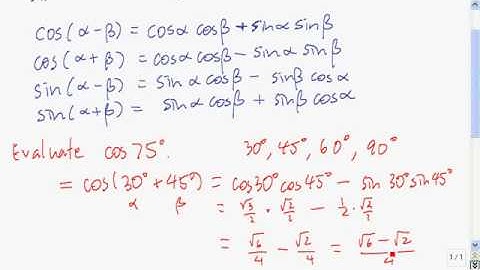 cos(α-β) = cosα cosβ + sinα sinβ
cos(α+β) = cosα cosβ - sinα sinβ
sin(α-β) = sinα cosβ - sinβ cosα
sin(α+β) = sinα cosβ + sinβ cosα
Evaluate cos75°. 30°, 45°, 60°, 90°
= cos(30°+45°) = cos30°cos45° - sin30°sin45°
α β = √3/2 · √2/2 - 1/2 · √2/2
= √6/4 - √2/4 = (√6-√2)/4
1/1